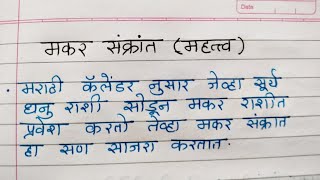 मकर संक्रांत (महत्त्व)
• मराठी कॅलेंडर नुसार जेव्हा सूर्य
धनु राशी सोडून मकर राशीत
प्रवेश करतो तेव्हा मकर संक्रात
हा सण साजरा करतात.